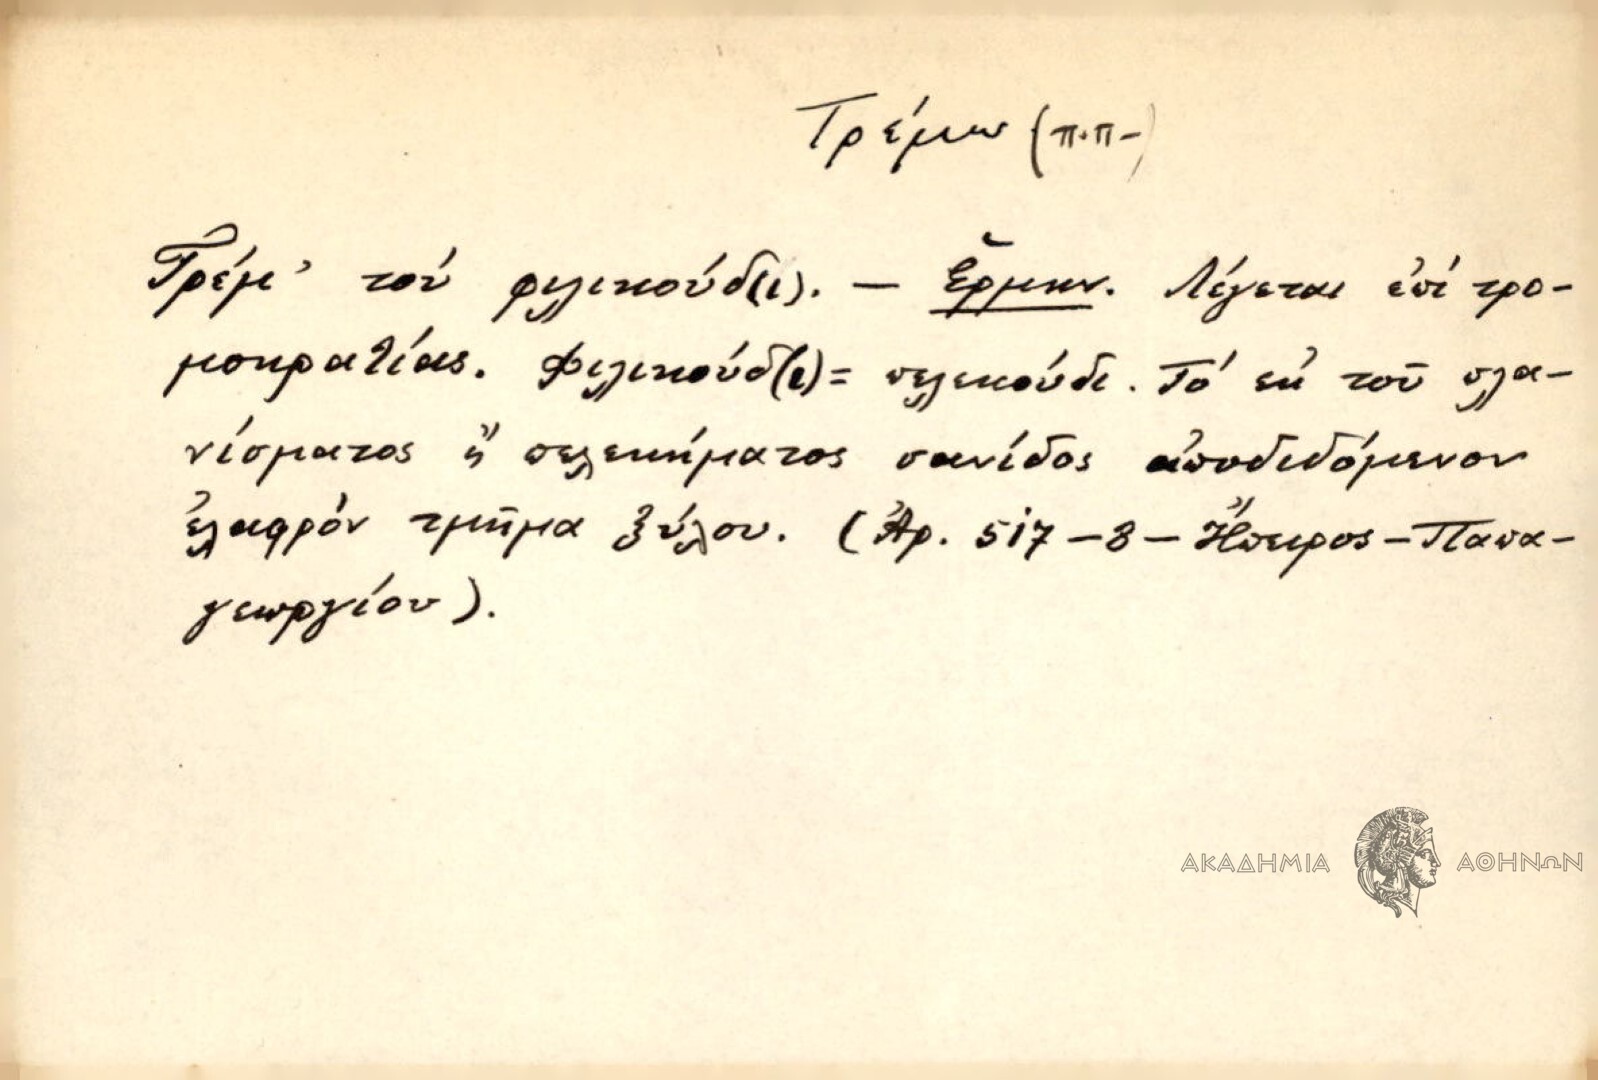 Τρέμω (π.π-)
Τρέμ' τοὺ φιλικούδ(ι). — Ἑρμην. Λέγεται ἐπί τρο-
μοκρατίας. Φιλικούδ(ι) = πελεκούδι. Τό ἐκ τοῦ πλα-
νίσματος ἤ πελεκήματος σανίδος ἀποδιδόμενον
ἐλαφρόν τμῆμα ξύλου. (Ἀρ. 517 – 8 – Ἤπειρος – Παπα-
γεωργίου).
ΑΚΑΔΗΜΙΑ ΑΘΗΝΩΝ